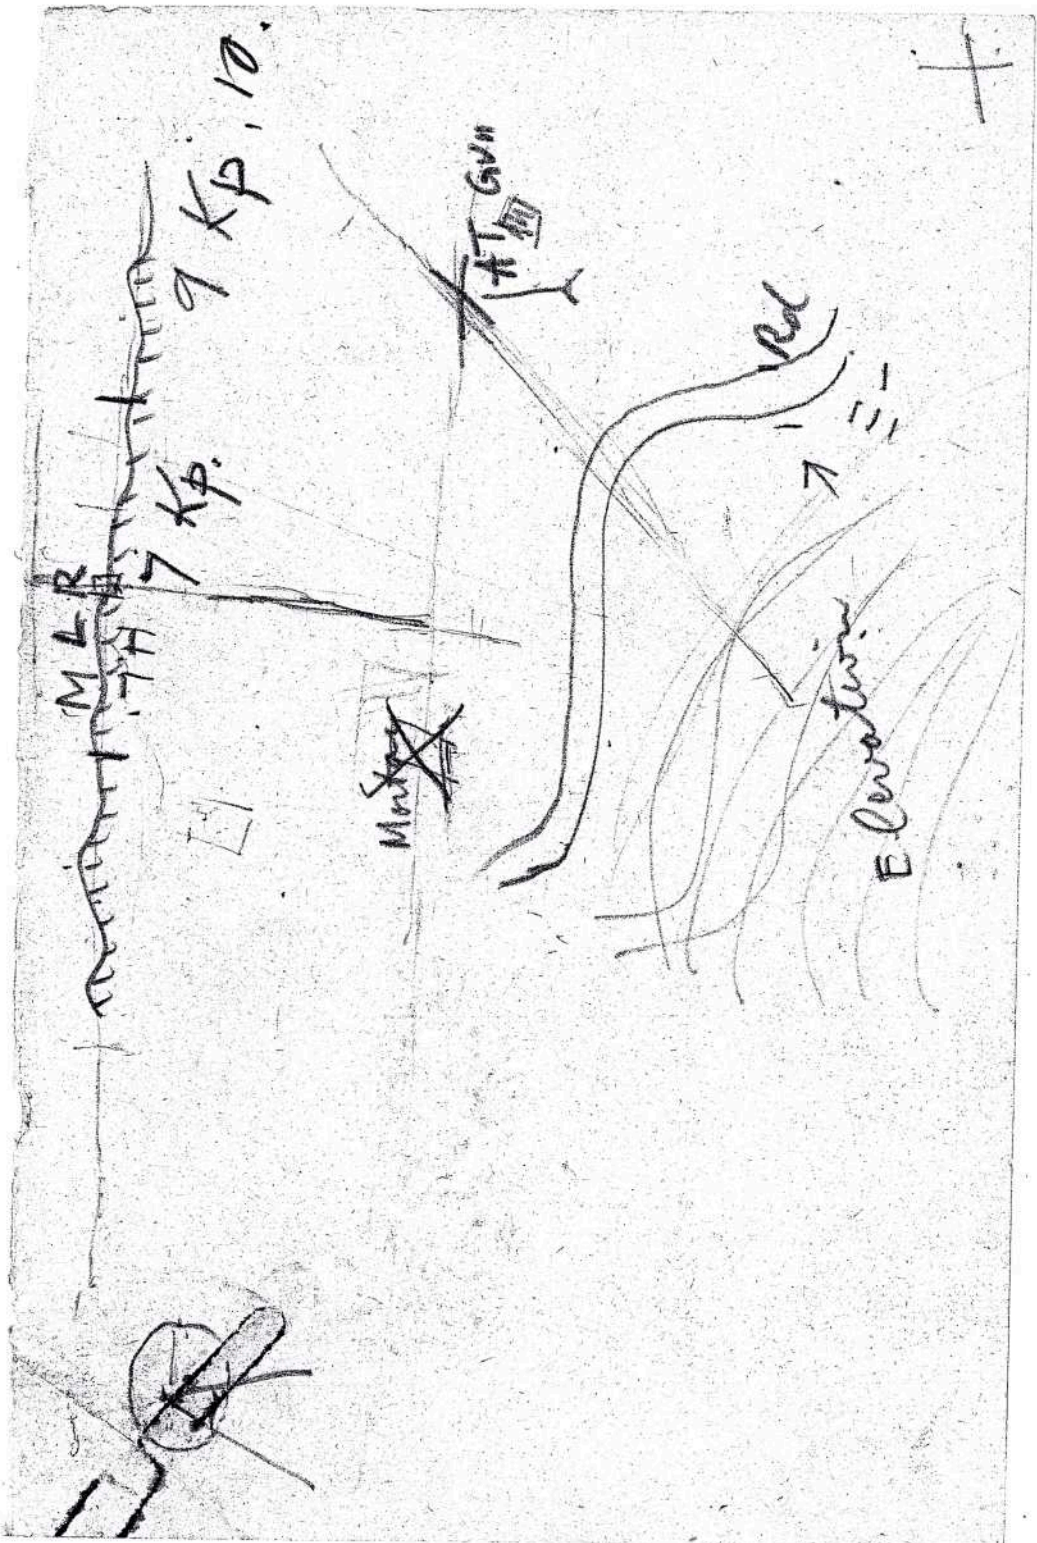 MLR
7 Kp.
9 Kp. 10.
AT Gun
Rd
Elevation